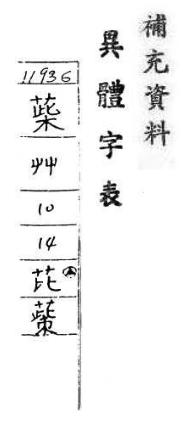 補充資料
異體字表
11936
艸
10
14
芘